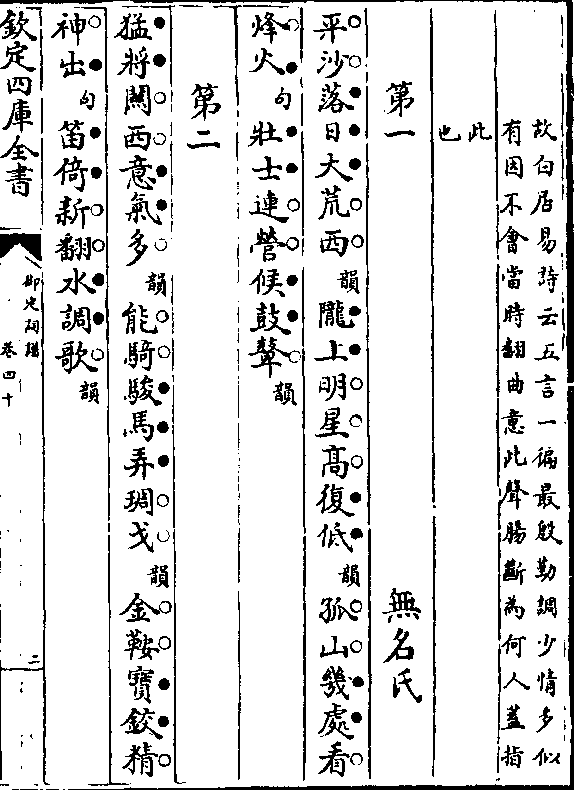 故白居易詩云五言一徧最殷勤調少情多似
有因不會當時翻曲意此聲腸斷為何人蓋指
此
也
第一　無名氏
平沙落日大荒西韻隴上明星高復低韻孤山幾處看
烽火句壯士連營候鼓鼙韻
第二
猛將關西意氣多韻能騎駿馬弄琱戈韻金鞍寶鉸精
神出句笛倚新翻水調歌韻
欽定四庫全書
御定詞譜
卷四十
二